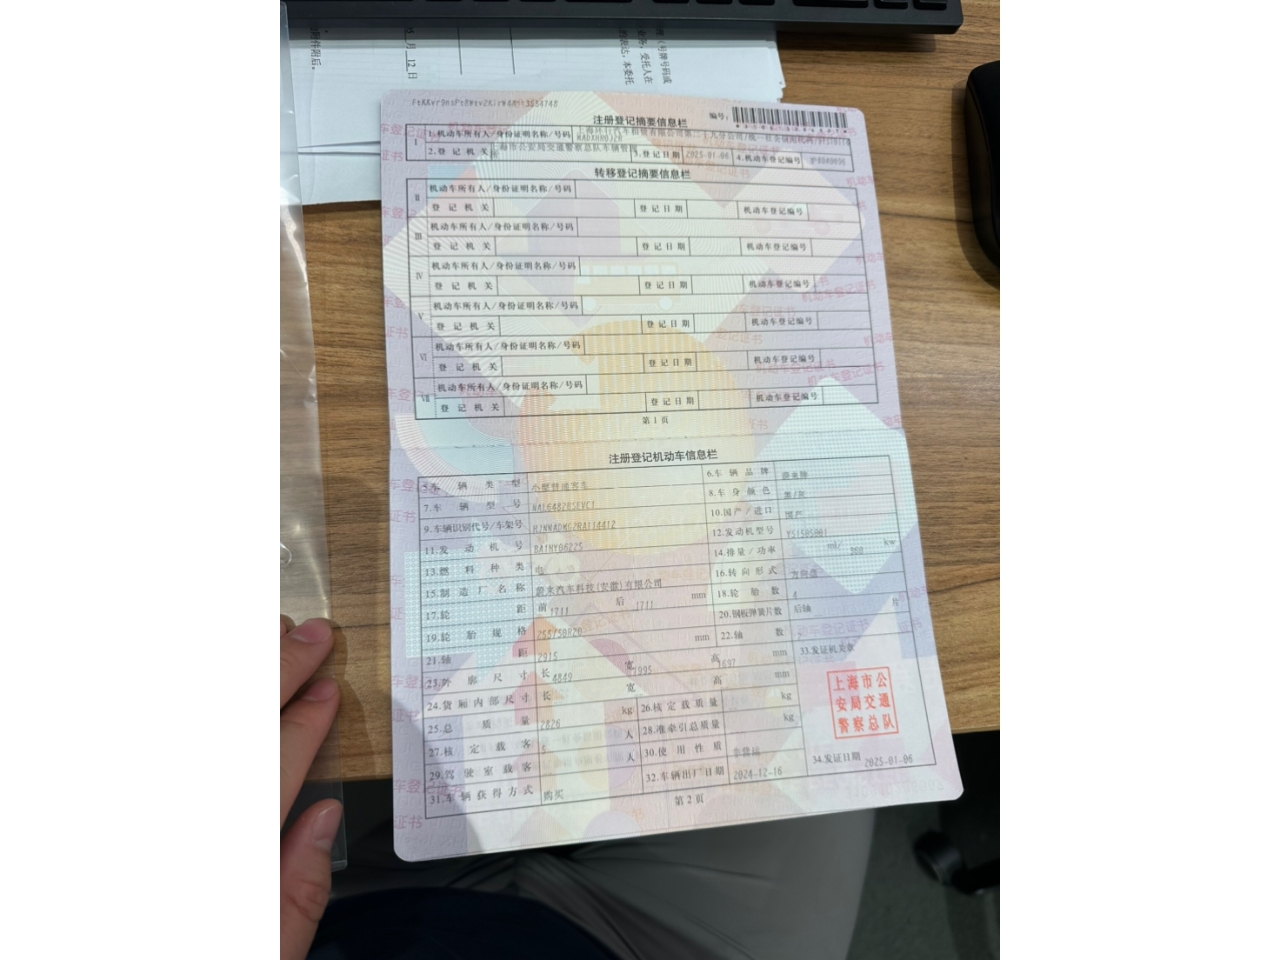 月 12 日
附件附后。
FtKKvr9nsPt8Wtv2KlrW4Att3534748
注册登记摘要信息栏
编号:
I 1.机动车所有人/身份证明名称/号码
2.登记机关 上海市公安局交通警察总队车辆管理所 3.登记日期 2025-01-06 4.机动车登记编号
转移登记摘要信息栏
II 机动车所有人/身份证明名称/号码
登记机关 登记日期 机动车登记编号
III 机动车所有人/身份证明名称/号码
登记机关 登记日期 机动车登记编号
IV 机动车所有人/身份证明名称/号码
登记机关 登记日期 机动车登记编号
V 机动车所有人/身份证明名称/号码
登记机关 登记日期 机动车登记编号
VI 机动车所有人/身份证明名称/号码
登记机关 登记日期 机动车登记编号
VII 机动车所有人/身份证明名称/号码
登记机关 登记日期 机动车登记编号
第1页
注册登记机动车信息栏
5.车辆类型 小型普通客车 6.车辆品牌 蔚来牌
7.车辆型号 8.车身颜色 黑/灰
9.车辆识别代号/车架号 HJNKADMG2RA114412 10.国产/进口 国产
11.发动机号 12.发动机型号
13.燃料种类 电 14.排量/功率 ml/ kw
15.制造厂名称 蔚来汽车科技(安徽)有限公司 16.转向形式 方向盘
17.轮距 前 1711 后 1711 mm 18.轮胎数 4
19.轮胎规格 255/50R20 20.钢板弹簧片数 后轴 片
21.轴距 2915 mm 22.轴数 2
23.外廓尺寸 长 4849 宽 1995 高 1697 mm 33.发证机关章
24.货厢内部尺寸 长 宽 高 mm
25.总质量 2826 kg 26.核定载质量 kg
27.核定载客 5 人 28.准牵引总质量 kg
29.驾驶室载客 人 30.使用性质
31.车辆获得方式 购买 32.车辆出厂日期 2024-12-16 34.发证日期 2025-01-06
上海市公
安局交通
警察总队
第2页